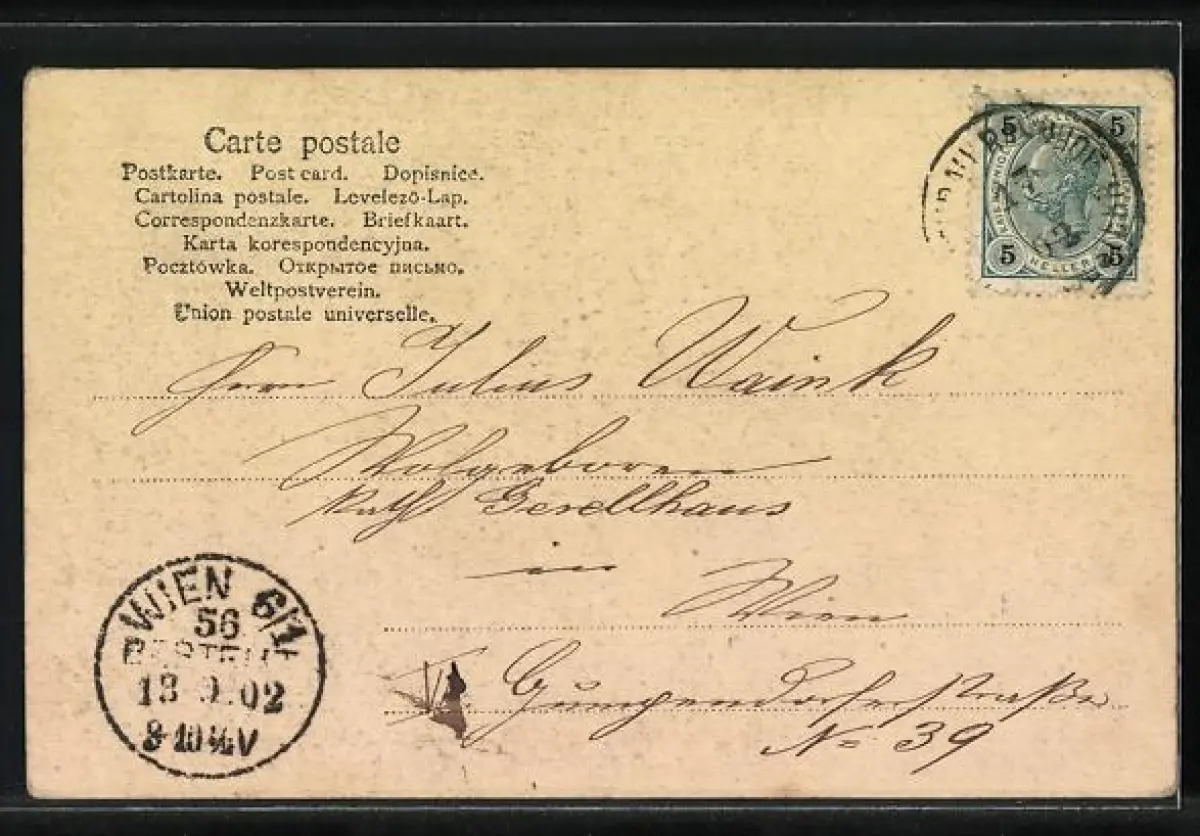 Carte postale
Postkarte. Post card. Dopisnice.
Cartolina postale. Levelező-Lap.
Correspondenzkarte. Briefkaart.
Karta korespondencyjna.
Pocztówka. Открытое письмо.
Weltpostverein.
Union postale universelle.
5 5
5 HELLER 5
Herrn Julius Waink
Wolgeboren
Kath Gesellhaus
in Wien
VI. Gumpendorferstraße
No 39
WIEN 6/1
56
BESTELLT
02
8-10½V